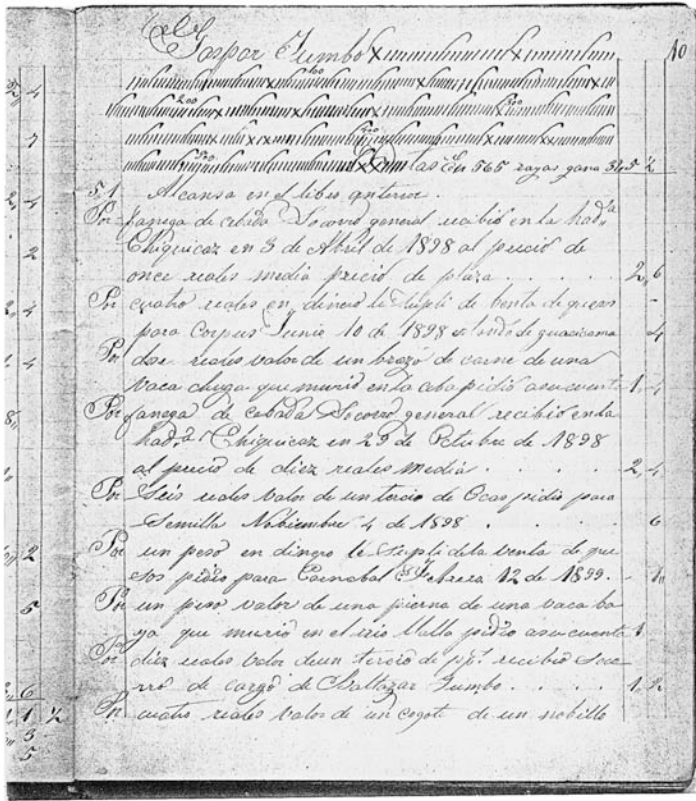 10
Gaspar Jumbo
100
200 300
400
500 las En 565 rayas gana 31,,5 ½
5,,1 Alcansa en el libro anterior.
Por fanega de cebada Socorro general recibió en la had.ª
Chiquicaz en 3 de Abril de 1898 al precio de
once reales media precio de plaza . . . . . 2,,6
Por cuatro reales en dinero le supli de benta de quesos
para Corpus Junio 10 de 1898 4
Por doce reales valor de un brazo de carne de una
vaca que murio en la pidió a su cuenta 1,,4
Por fanega de cebada Socorro general recibio en la
had.ª Chiquicaz en 29 de Octubre de 1898
al precio de diez reales media . . . . . 2,,4
Por Seis reales balor de un tercio de Ocas pidio para
Semilla Nobiembre 4 de 1898 . . . . 6
Por un peso en dinero le supli de la benta de que
sos pidio para Carnabal Febrero 12 de 1899. 1,,
Por un peso valor de una pierna de una vaca ba
ya que murio en el sitio pidio a su cuenta 1
Por diez reales balor de un tercio de pp.s recibio Soco
rro de cargo de Baltazar Jumbo . . . . . 1,,2
Por cuatro reales balor de un cogote de un nobillo
4
7
4
2
4
4
8,,
2
5
6
1 ½
3
5